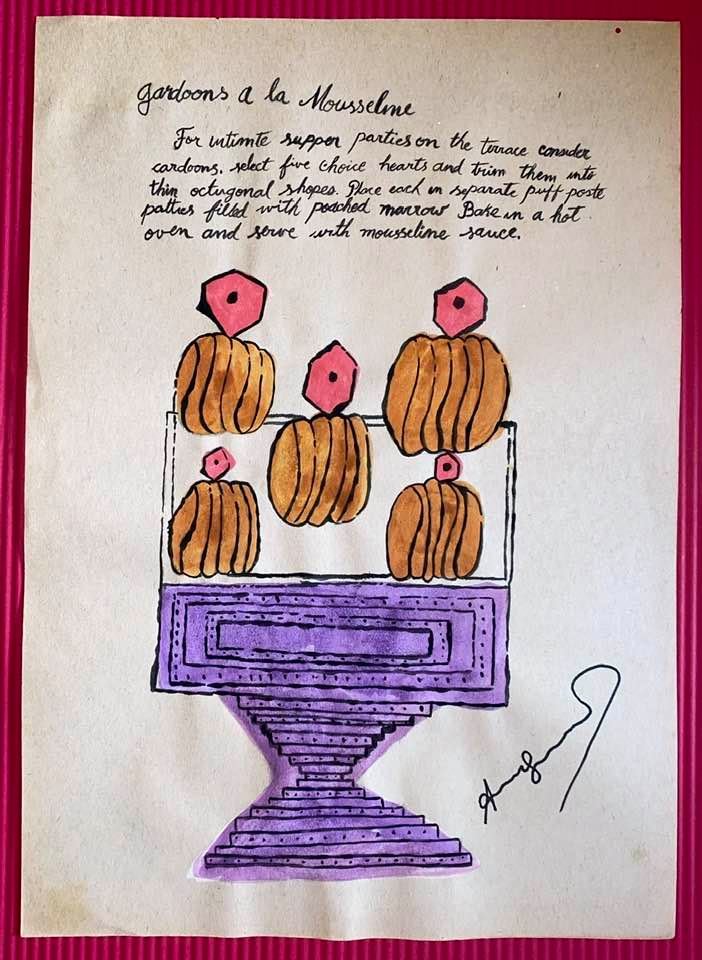 Gardoons a la Mousselme
For intimte suppen parties on the terrace consider
cardoons. select five choice hearts and trim them into
thin octugonal shopes. Place each in separate puff poste
patties filled with poached marrow Bake in a hot
oven and serve with mousseline sauce.